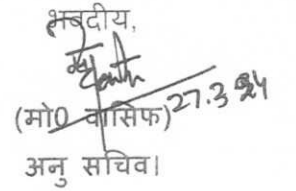 भवदीय,
(मो0 वासिफ) 27.3.24
अनु सचिव।